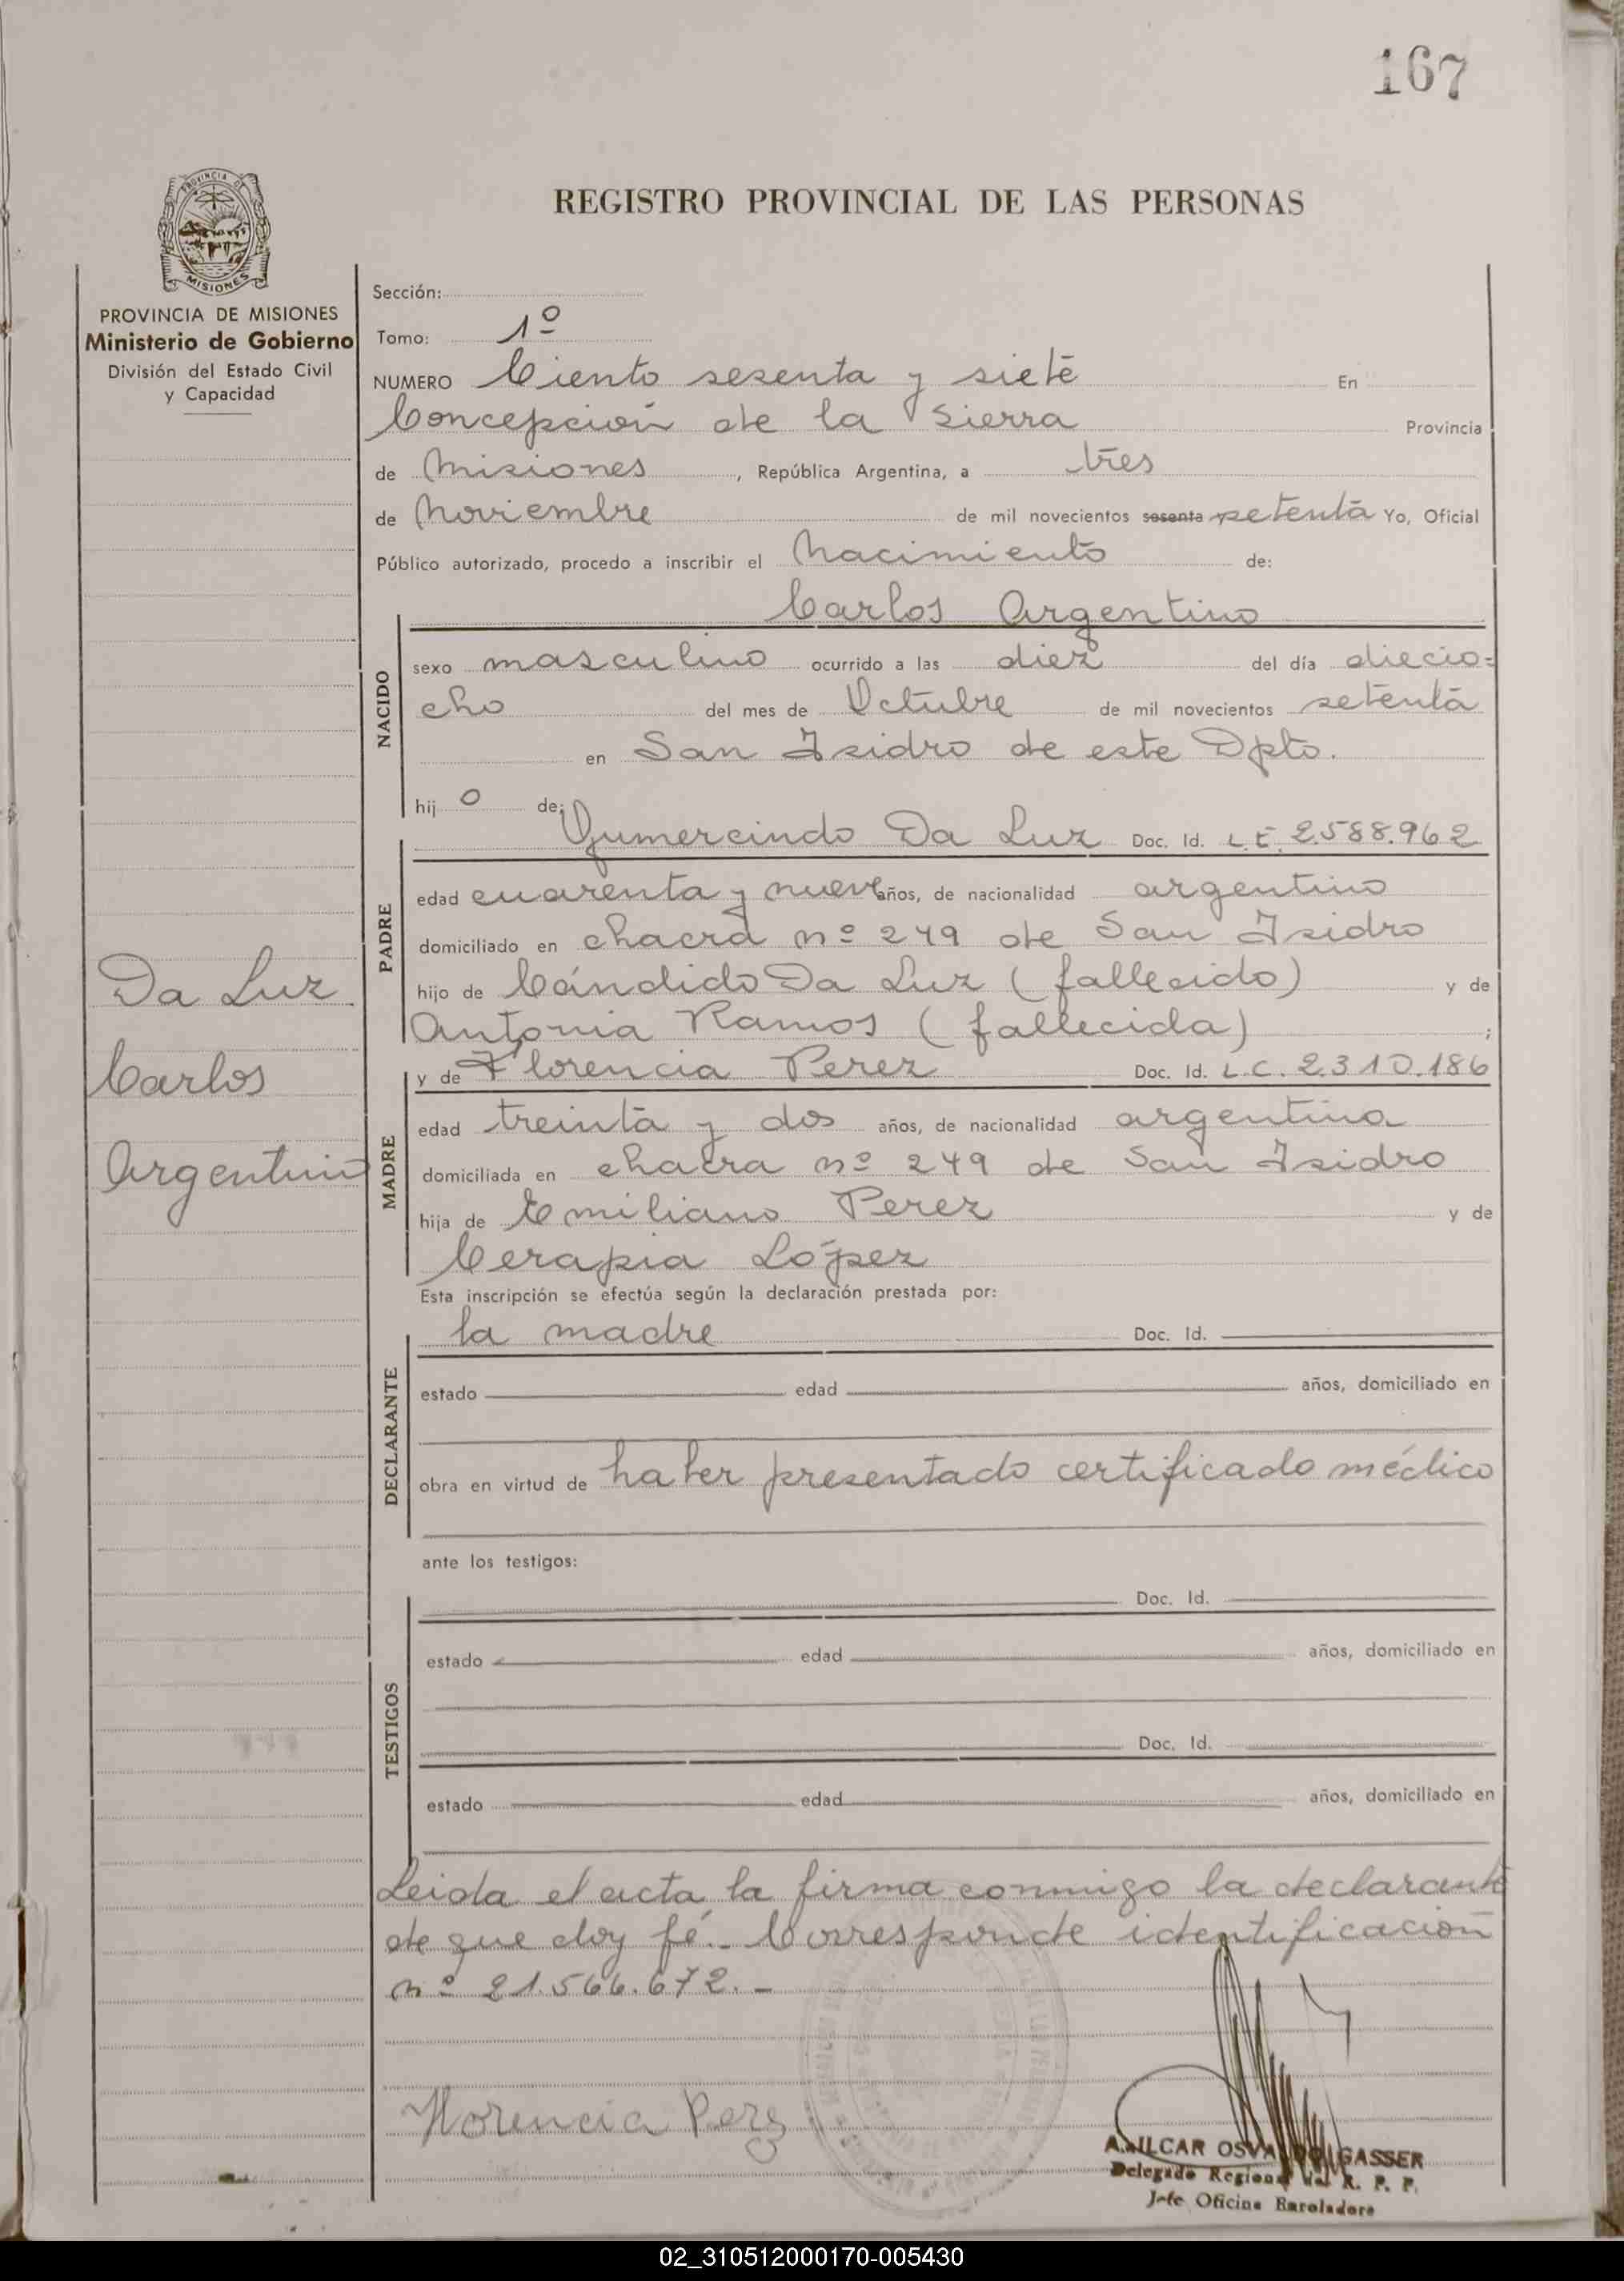 167
PROVINCIA DE
MISIONES
REGISTRO PROVINCIAL DE LAS PERSONAS
PROVINCIA DE MISIONES
Ministerio de Gobierno
División del Estado Civil
y Capacidad
Sección:
Tomo: 1º
NUMERO Ciento sesenta y siete En
Concepción de la Sierra Provincia
de Misiones, República Argentina, a tres
de Noviembre de mil novecientos sesenta setenta Yo, Oficial
Público autorizado, procedo a inscribir el Nacimiento de:
Carlos Argentino
NACIDO
sexo masculino ocurrido a las diez del día diecio=
cho del mes de Octubre de mil novecientos setenta
en San Isidro de este Dpto.
hij o de:
Gumercindo Da Luz Doc. Id. L.E. 2.588.962
PADRE
edad cuarenta y nueve años, de nacionalidad argentino
domiciliado en chacra nº 249 de San Isidro
hijo de Cándido Da Luz (fallecido) y de
Antonia Ramos (fallecida) ;
y de Florencia Perez Doc. Id. L.C. 2.310.186
MADRE
edad treinta y dos años, de nacionalidad argentina
domiciliada en chacra nº 249 de San Isidro
hija de Emiliano Perez y de
Cerapia López
Esta inscripción se efectúa según la declaración prestada por:
la madre Doc. Id.
DECLARANTE
estado edad años, domiciliado en
obra en virtud de haber presentado certificado médico
ante los testigos:
Doc. Id.
TESTIGOS
estado edad años, domiciliado en
Doc. Id.
estado edad años, domiciliado en
Leida el acta la firma conmigo la declarante
de que doy fé.- Corresponde identificación
nº 21.566.672.-
Da Luz
Carlos
Argentino
Florencia Perez
AMILCAR OSVALDO GASSER
Delegado Regional del R. P. P.
Jefe Oficina Enroladora
02_310512000170-005430